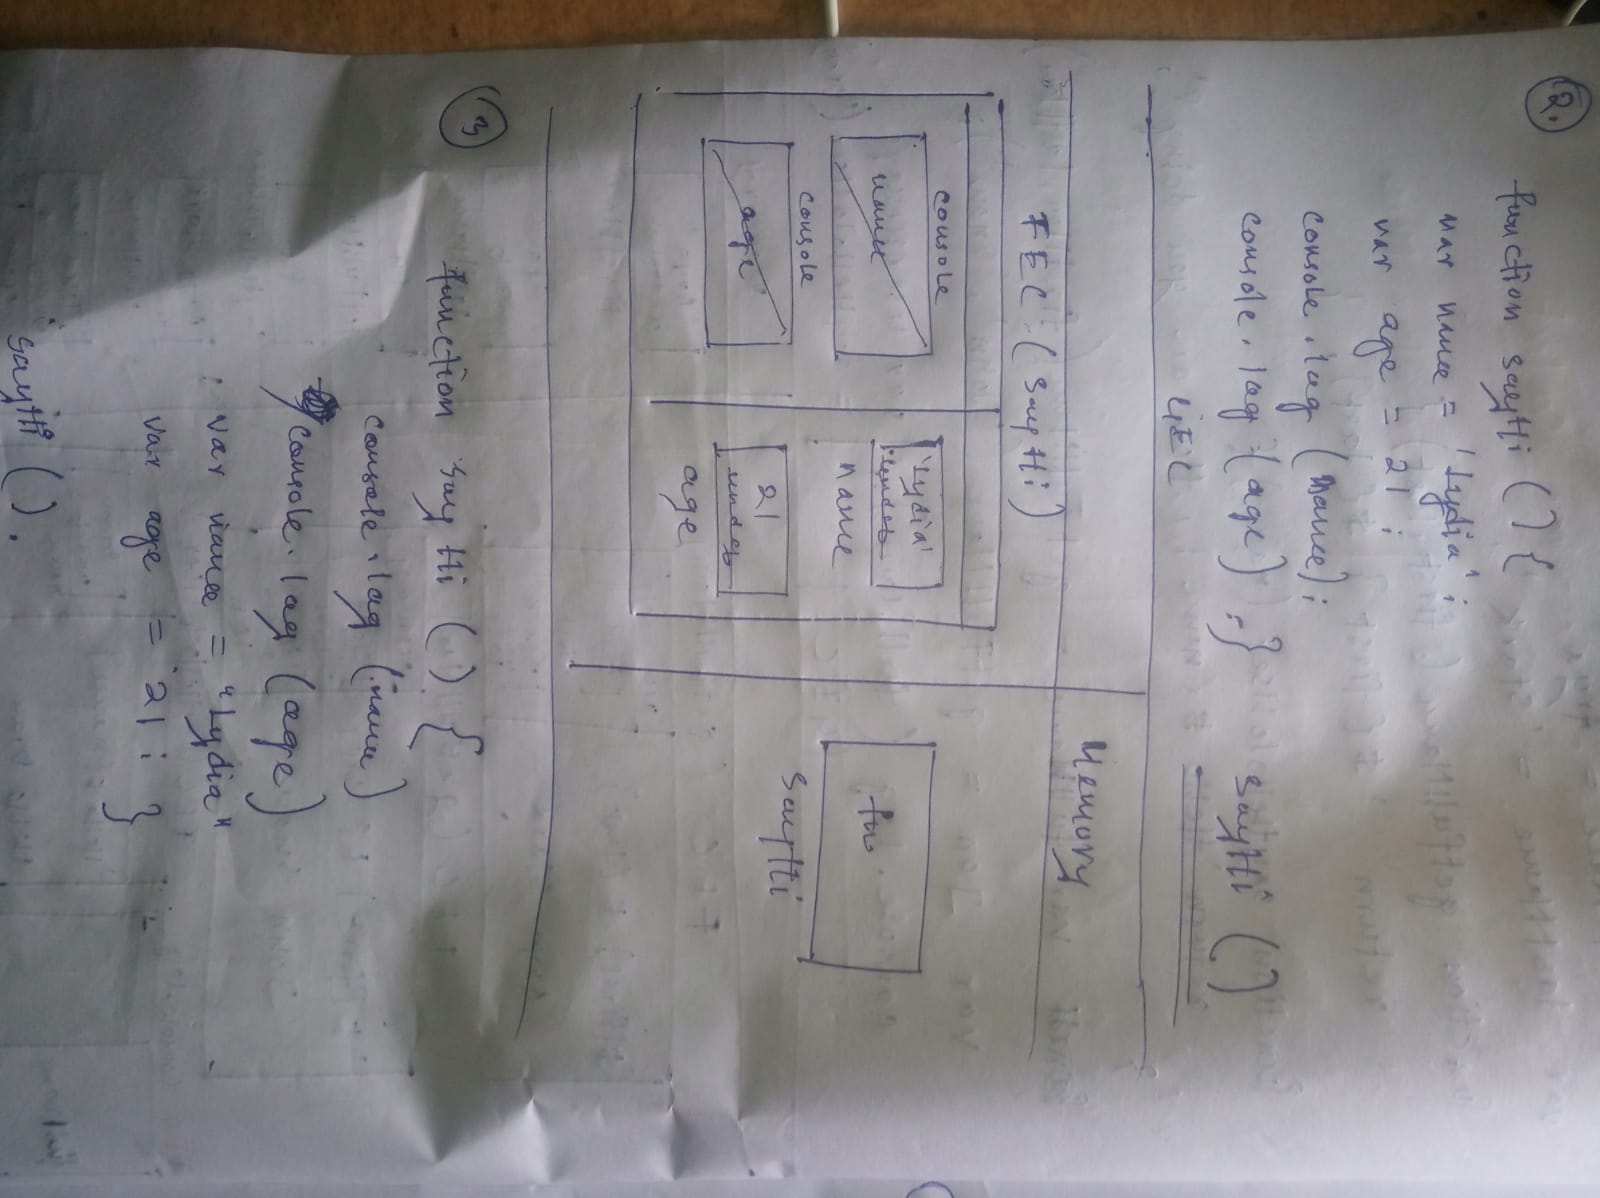 2.
function sayHi () {
var name = 'Lydia';
var age = 21;
console.log (name);
console.log (age); }
sayHi ()
GEC
Memory
FEC (SayHi)
console
name
console
age
'Lydia'
undeb
name
21
undeb
age
fn
SayHi
3
function SayHi () {
console.log (name)
console.log (age)
var name = "Lydia"
var age = 21; }
sayHi ().